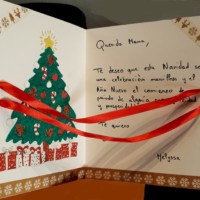 Querida Mamá,
Te deseo que esta Navidad se
una celebración maravillosa y el
Año Nuevo el comienzo de
periodo de alegría,
y prosperidad
Te quiero
Melyssa